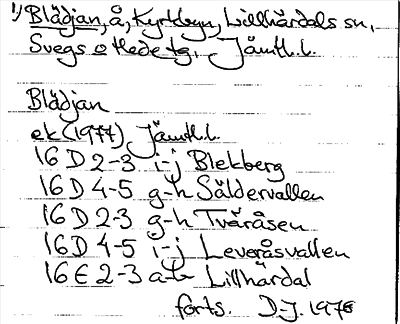 1) Blädjan, å, Kyrkbyn, Lillhärdals sn,
Svegs o Hede tg. Jämtl.l.
Blädjan
ek (1977) Jämtl.l.
16 D 2-3 i-j Blekberg
16 D 4-5 g-h Säldervallen
16 D 2-3 g-h Tväråsen
16 D 4-5 i-j Leveråsvallen
16 E 2-3 a-b Lillhärdal
forts. D.J. 1978